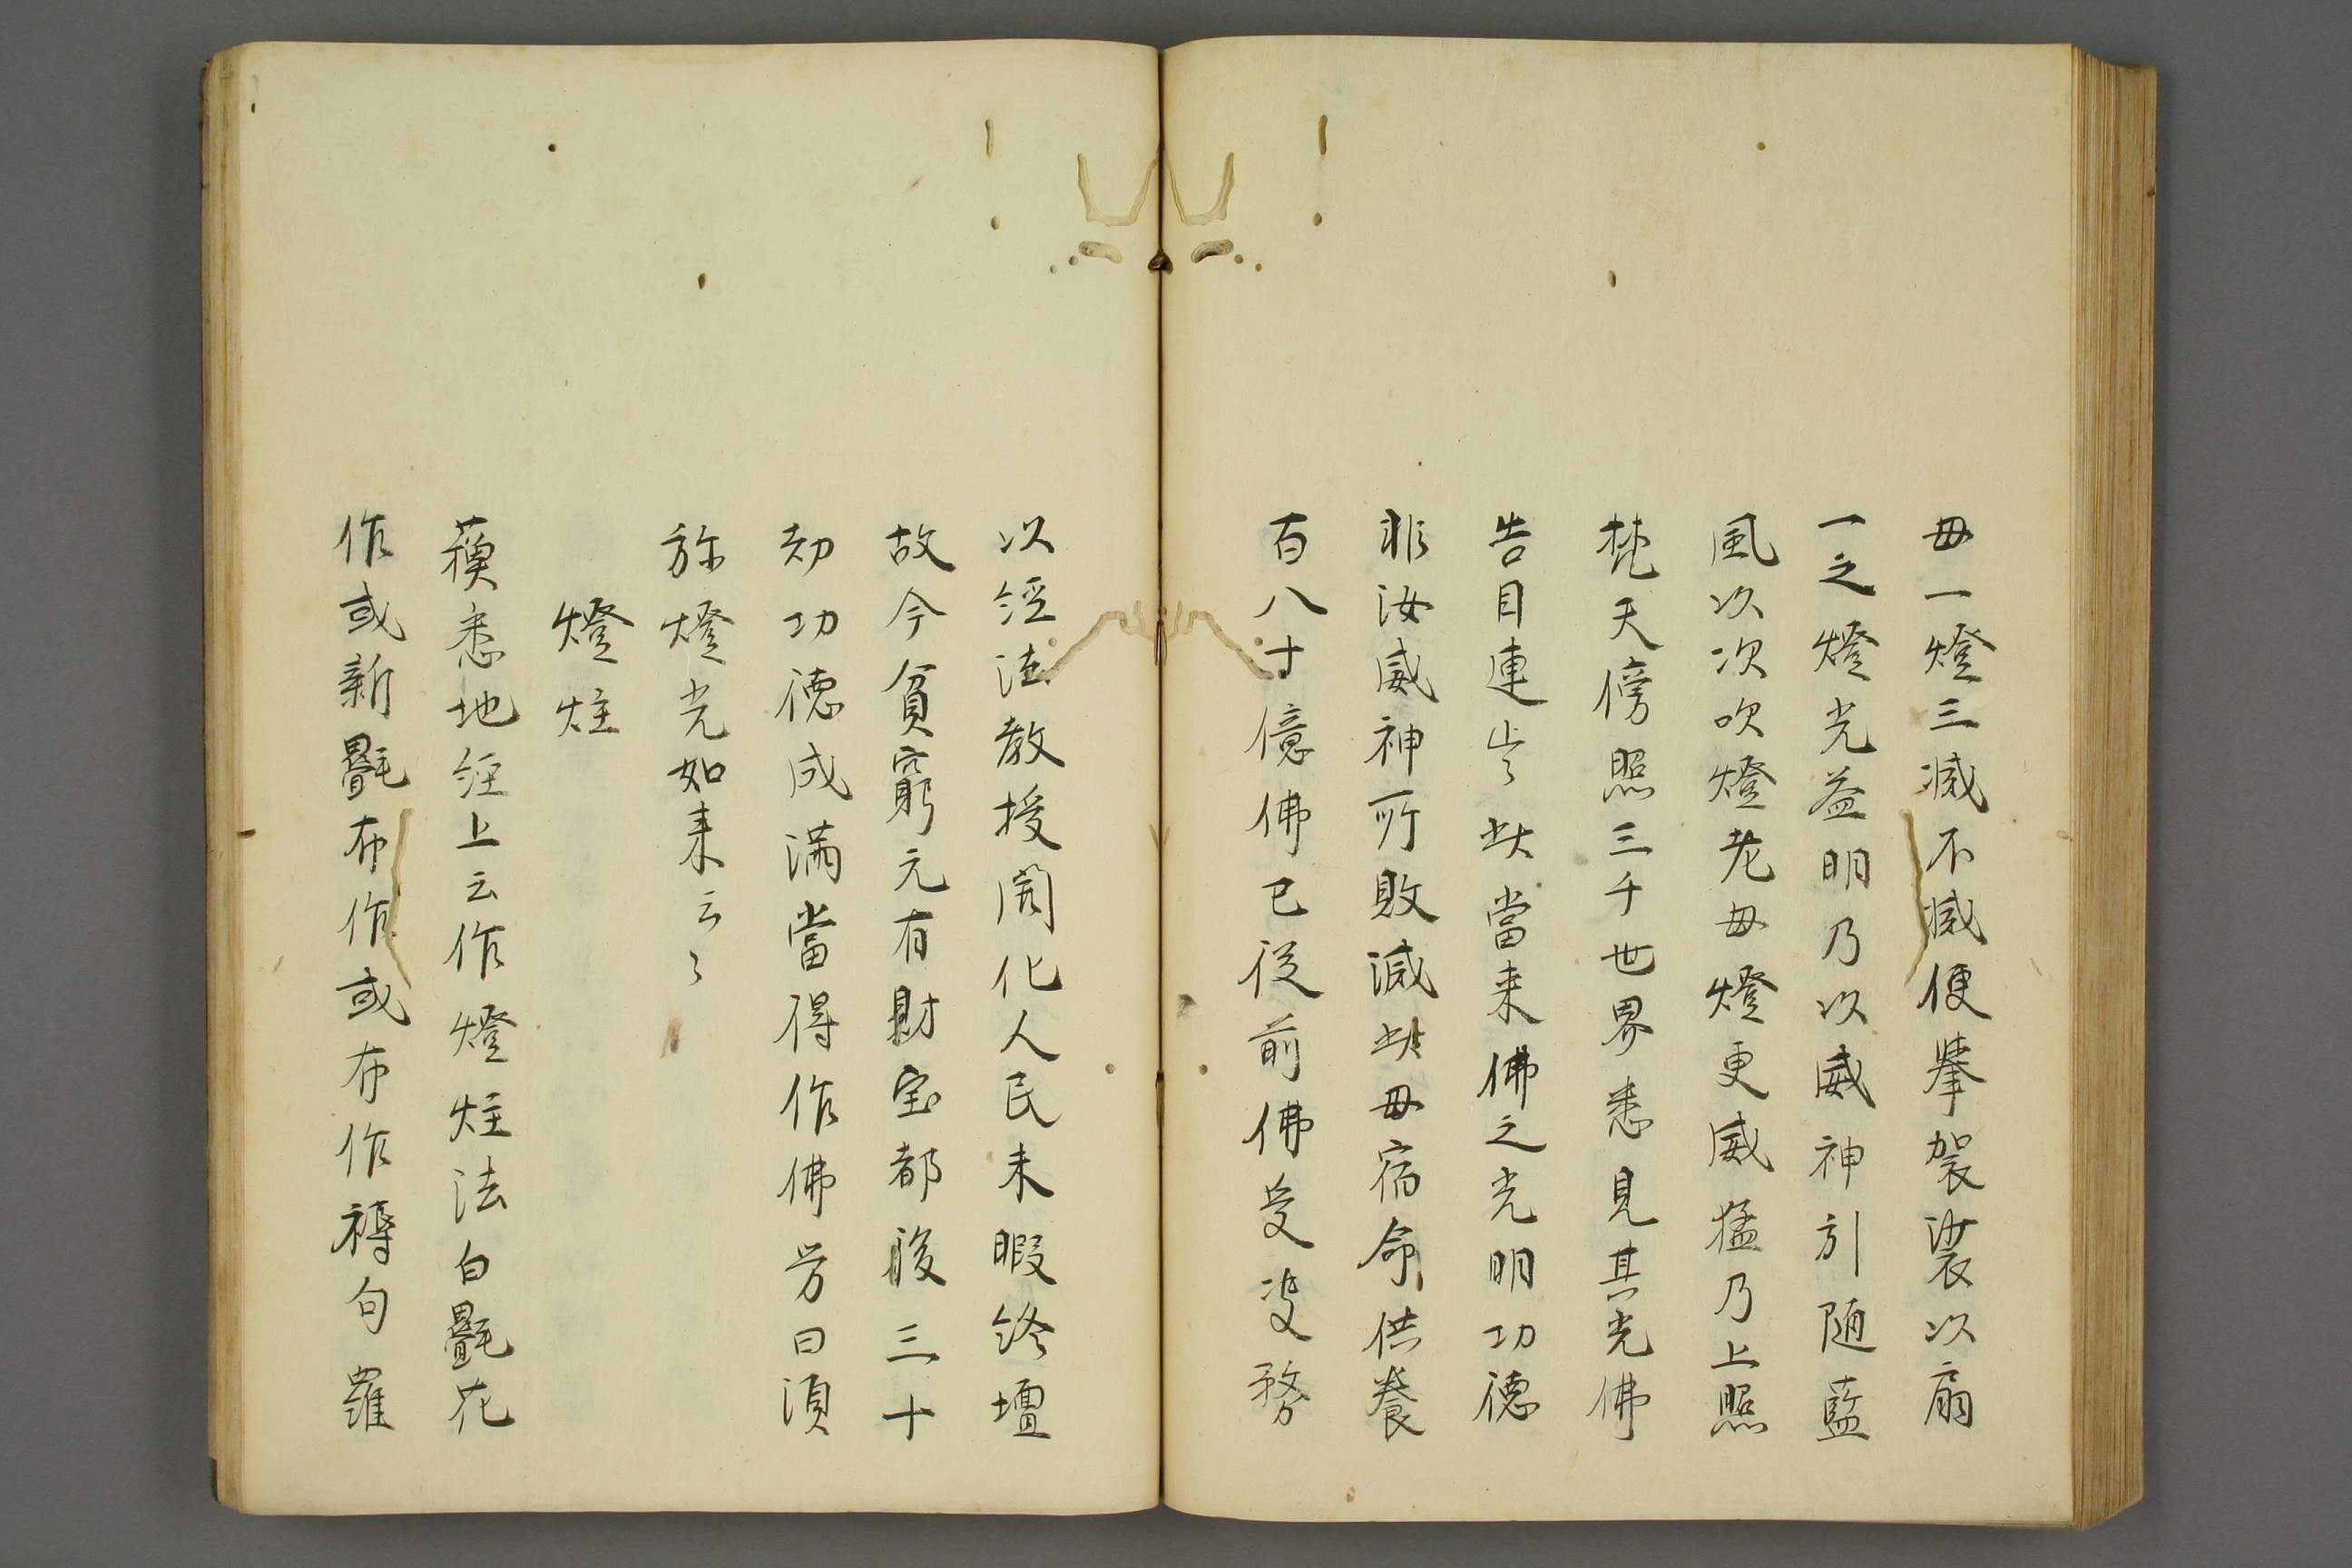 毋一燈三滅不滅便攀袈裟以扇
一之燈光益明乃以威神引随藍
風以次吹燈老毋燈更威猛乃上照
梵天傍照三千世界悉見其光佛
告目連止々此當来佛之光明功徳
非汝威神所敗滅此毋宿命供養
百八十億佛已從前佛受決務
以經法教授開化人民未暇修壇
故今貧窮无有財宝都後三十
劫功徳成満當得作佛号曰湏
弥燈光如来云々
燈炷
蘓悉地經上云作燈炷法白㲲花
作或新㲲布作或布作褥句羅